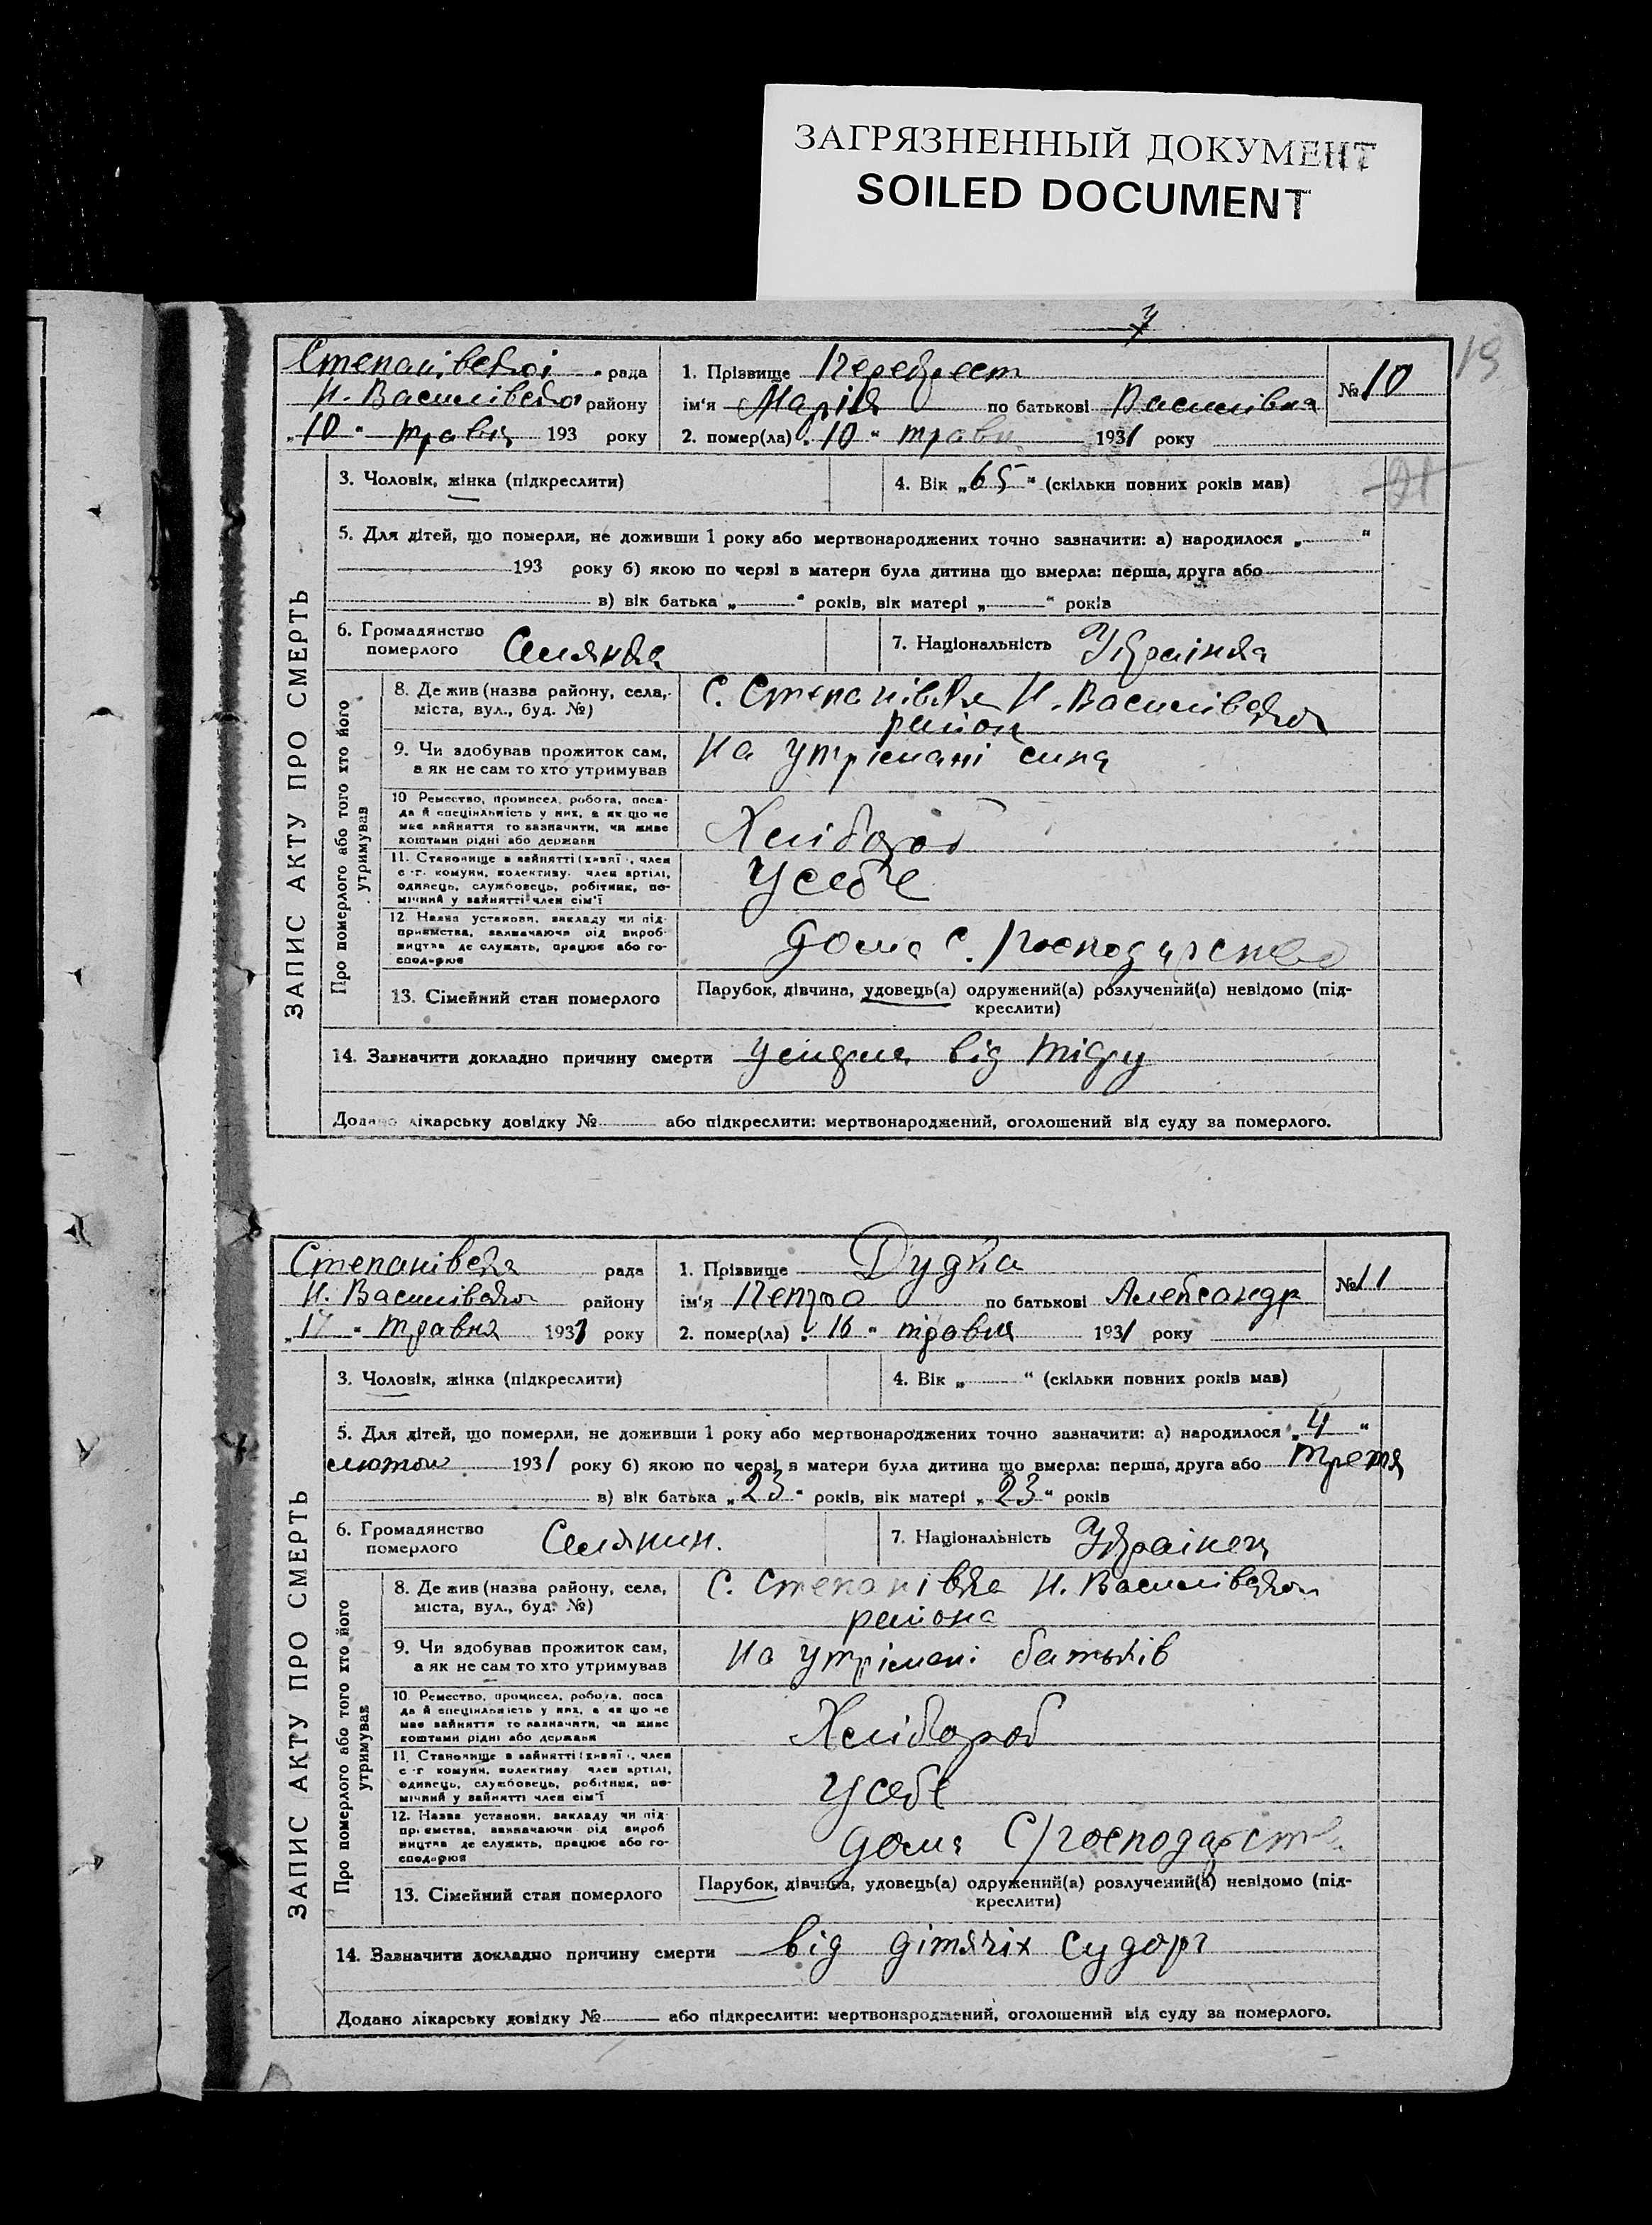 ЗАГРЯЗНЕННЫЙ ДОКУМЕНТ
SOILED DOCUMENT
19
Степанівської рада
Н. Василівсько району
„10“ травня 193 року
1. Прізвище Перехрест
ім'я Марія по батькові Василівна
2. помер(ла) „10“ травн 1931 року
№ 10
ЗАПИС АКТУ ПРО СМЕРТЬ
3. Чоловік, жінка (підкреслити)
4. Вік „65“ (скільки повних років мав)
5. Для дітей, що померли, не доживши 1 року або мертвонароджених точно зазначити: а) народилося „ “
193 року б) якою по черзі в матери була дитина що вмерла: перша, друга або
в) вік батька „ “ років, вік матері „ “ років
6. Громадянство померлого Селянка
7. Національність Українка
Про померлого або того хто його утримував
8. Де жив (назва району, села, міста, вул., буд. №)
С. Степанівка Н. Василівсько
район
9. Чи здобував прожиток сам, а як не сам то хто утримував
На утрімані сина
10 Ремество, промисел, робота, посада й спеціяльність у них, а як що не має зайняття то зазначити, чи живе коштами рідні або держави
Хлібороб
11. Становище в зайнятті (хазяї, член с.-г. комуни, колективу, член артілі, одинець, службовець, робітник, помічний у зайнятті член сім'ї
У себе
12. Назва установи, закладу чи підприємства, зазначаючи рід виробництва де служить, працює або господарює
дома С. господарство
13. Сімейний стан померлого
Парубок, дівчина, удовець(а) одружений(а) розлучений(а) невідомо (підкреслити)
14. Зазначити докладно причину смерти від
Додано лікарську довідку № або підкреслити: мертвонароджений, оголошений від суду за померлого.
Степанівска рада
Н. Василівсько району
травня 1931 року
1. Прізвище Дудка
ім'я Петро по батькові Александр
2. помер(ла) „16“ травня 1931 року
№ 11
ЗАПИС АКТУ ПРО СМЕРТЬ
3. Чоловік, жінка (підкреслити)
4. Вік „ “ (скільки повних років мав)
5. Для дітей, що померли, не доживши 1 року або мертвонароджених точно зазначити: а) народилося „4“
1931 року б) якою по черзі в матери була дитина що вмерла: перша, друга або третя
в) вік батька „23“ років, вік матері „23“ років
6. Громадянство померлого Селянин.
7. Національність Українец
Про померлого або того хто його утримував
8. Де жив (назва району, села, міста, вул., буд. №)
С. Степанівка Н. Василівсько
района
9. Чи здобував прожиток сам, а як не сам то хто утримував
На утрімані батьків
10. Ремество, промисел, робота, посада й спеціяльність у них, а як що не має зайняття то зазначити, чи живе коштами рідні або держави
Хлібороб
11. Становище в зайнятті (хазяї, член с.-г. комуни, колективу, член артілі, одинець, службовець, робітник, помічний у зайнятті член сім'ї
У себе
12. Назва установи, закладу чи підприємства, зазначаючи рід виробництва де служить, працює або господарює
дома С/господарств
13. Сімейний стан померлого
Парубок, дівчина, удовець(а) одружений(а) розлучений(а) невідомо (підкреслити)
14. Зазначити докладно причину смерти від дітячіх судорг
Додано лікарську довідку № або підкреслити: мертвонароджений, оголошений від суду за померлого.